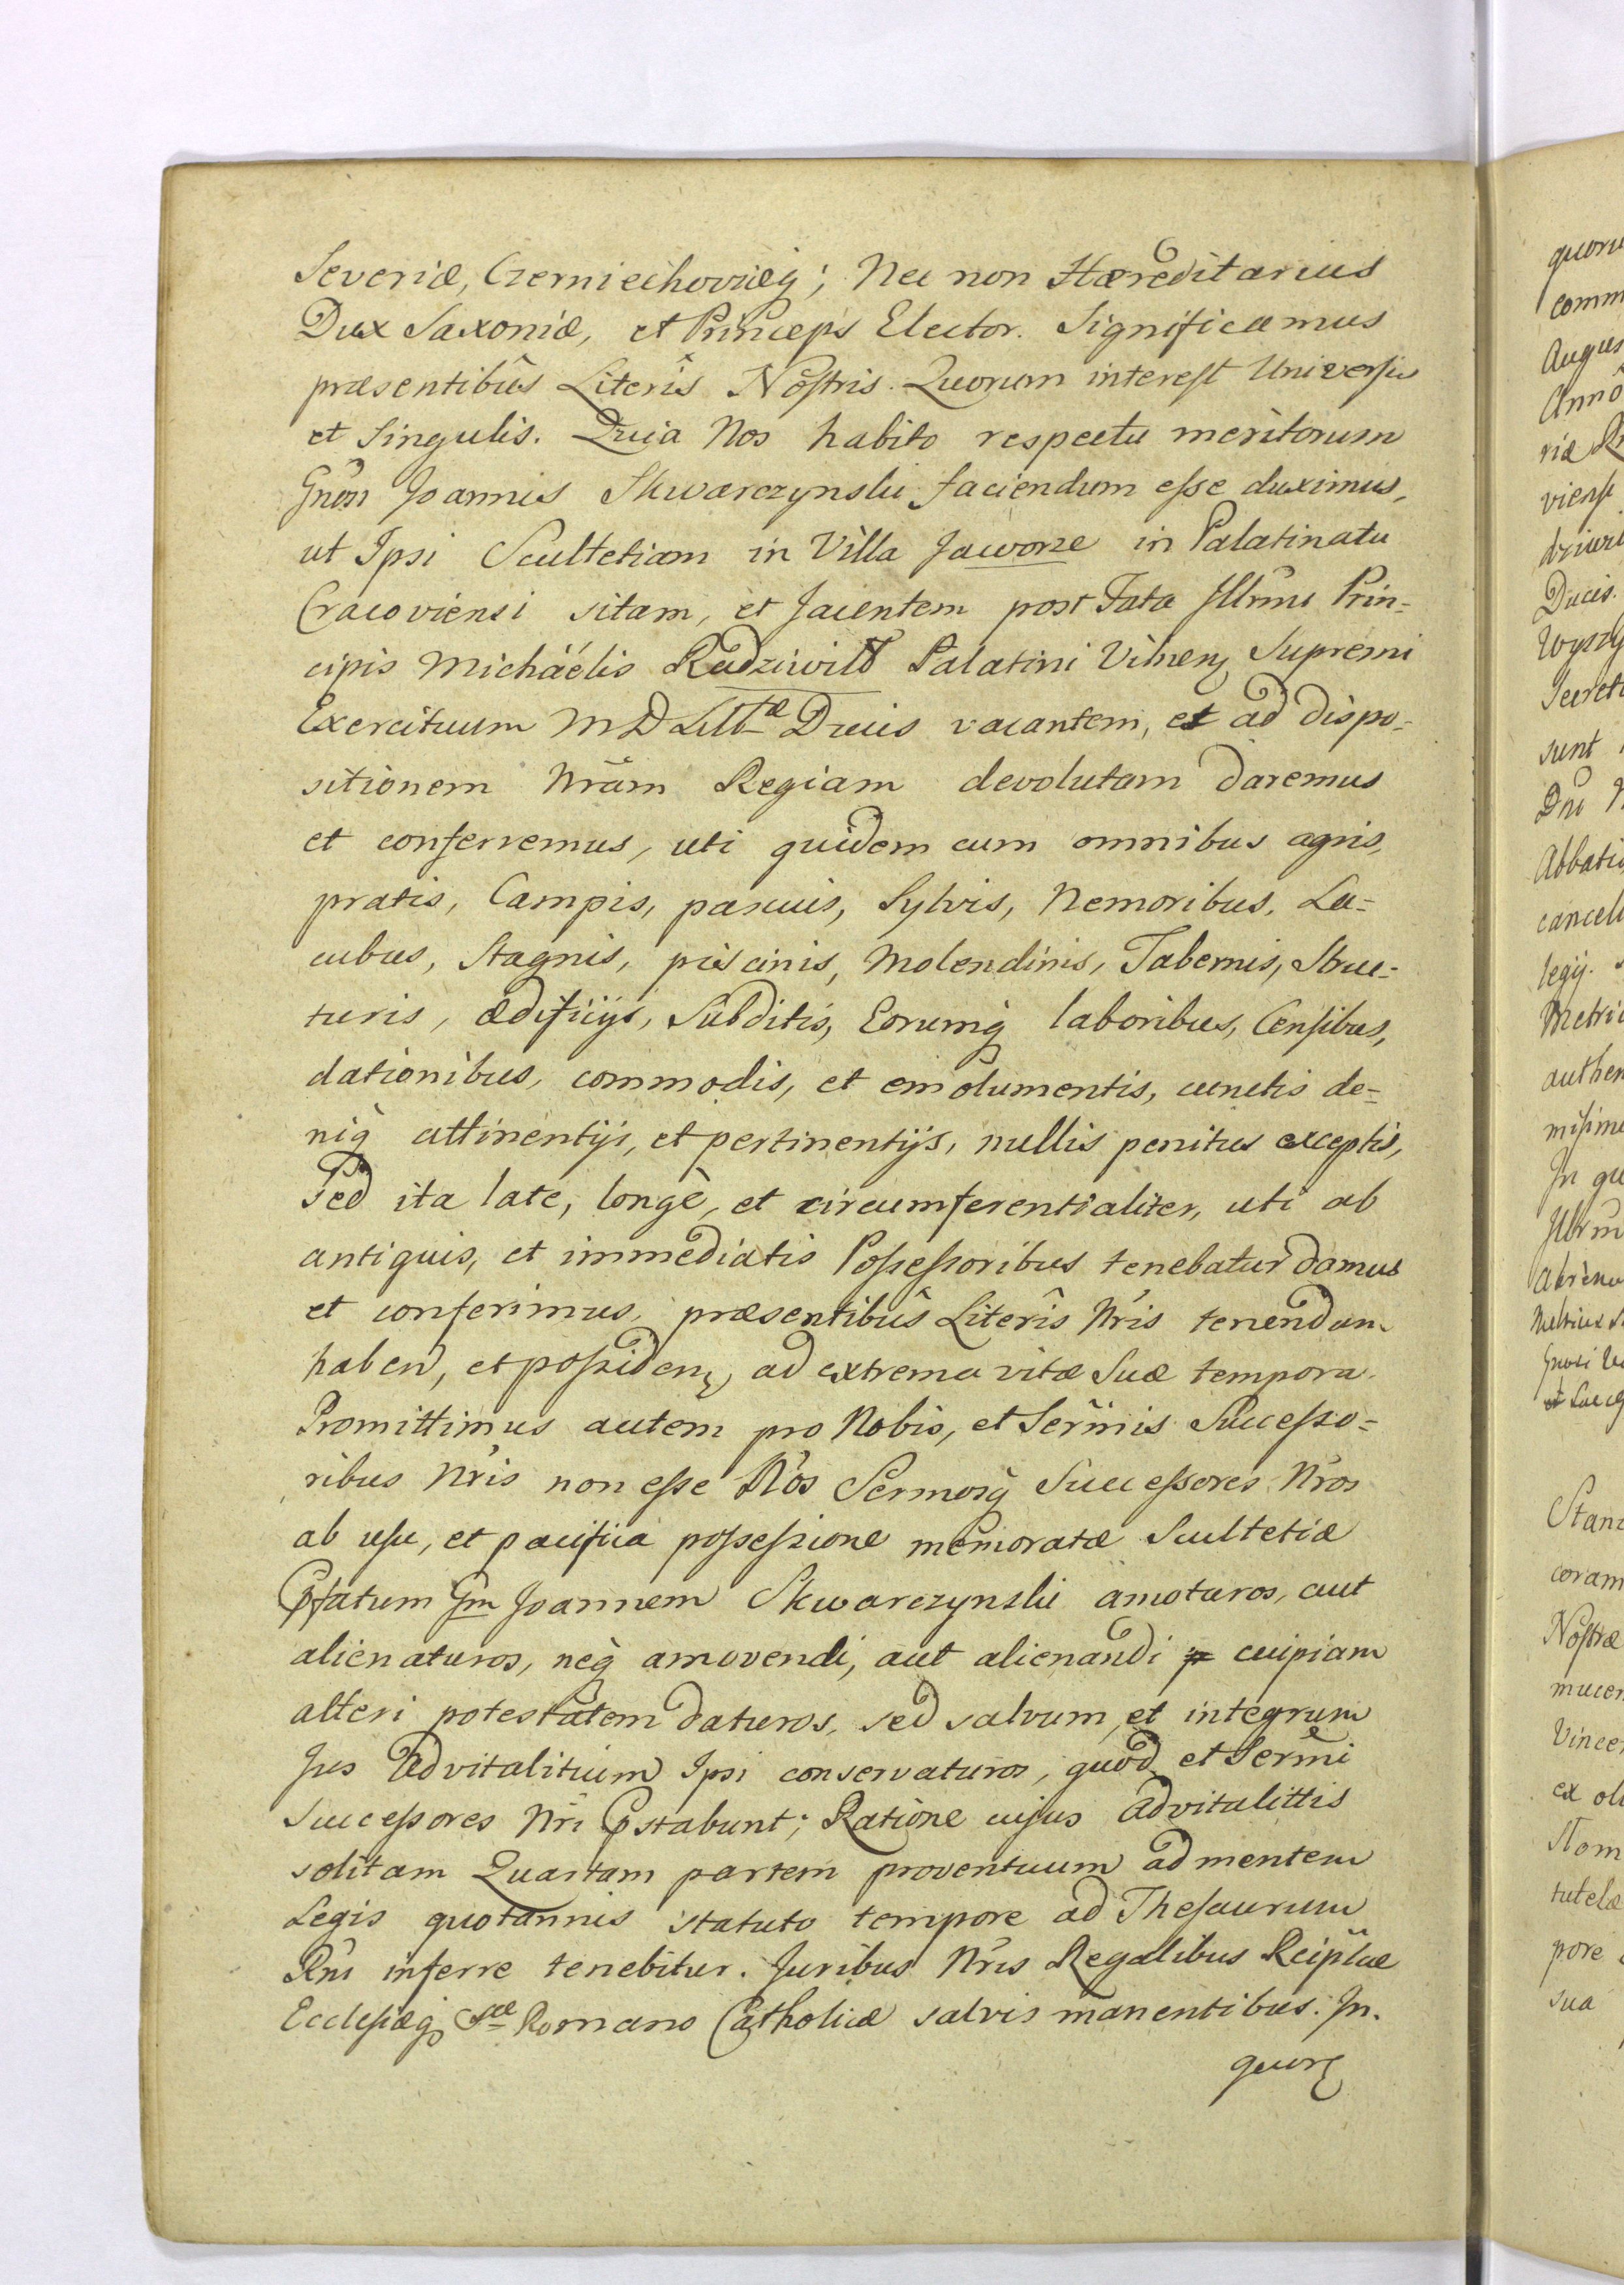 Severiæ, Czerniechoviæq; Nec non Hæreditarius
Dux Saxoniæ, et Princeps Elector. Significamus
præsentibûs Literîs Nostris. Quorum interest Universis
et Singulis. Quia Nos habito respectu meritorum
Gñosi Joannis Skwarczynski faciendum esse duximus,
ut Ipsi Scultetiam in Villa Jaworze in Palatinatu
Cracoviensi sitam, et Jacentem post Fata Illrmi Prin=
cipis Michaélis Radziwiłł Palatini Vilnen, Supremi
Exercituum M D Litt̃æ Ducis vacantem, et ad dispo=
sitionem Nrãm Regiam devolutam daremus
et conferremus, uti quidem cum omnibus agris,
pratis, Campis, pascuis, Sylvis, Nemoribus, La=
cubus, Stagnis, piscinis, Molendinis, Tabernis, Struc=
turis, ædificijs, Subditis, Eorumq laboribus, Censibus,
dationibus, commodis, et emolumentis, cunctis de=
niq̀ attinentijs, et pertinentijs, nullis penitus exceptis,
Sed ita late, longè, et circumferentialiter, uti ab
antiquis, et immediatis Possessoribus tenebatur damus
et conferimus, præsentibûs Literîs Nris tenendam
habend, et possiden, ad extrema vitæ Suæ tempora.
Promittimus autem pro Nobis, et Serm̃is Successo=
ribus Nris non esse Nos Sermosq̀ Successores Nros
ab usu, et pacifica possessione memoratæ Scultetiæ
Pfatum Gm Joannem Skwarczynski amoturos, aut
alienaturos, neq̀ amovendi, aut alienandi cuipiam
alteri potestatem daturos, sed salvum et integrum
Jus Advitalitium Ipsi conservaturos, quod et Serm̃i
Successores Nri Pstabunt; Ratione cujus advitalittis
solitam Quartam partem proventuum ad mentem
Legis quotannis statuto tempore ad Thesaurum
Rni inferre tenebitur. Juribus Nris Regalibus Reiplcæ
Ecclesiæq Scæ Romano Catholicæ salvis manentibus. In.
quor
comm
Augus
Annô
riæ
viensi
Ducis.
sunt
Abbatis
cancell
legij.
Metric
authen
In qu
coram
Nostræ
Vincen
ex
tutelæ
pore
sua